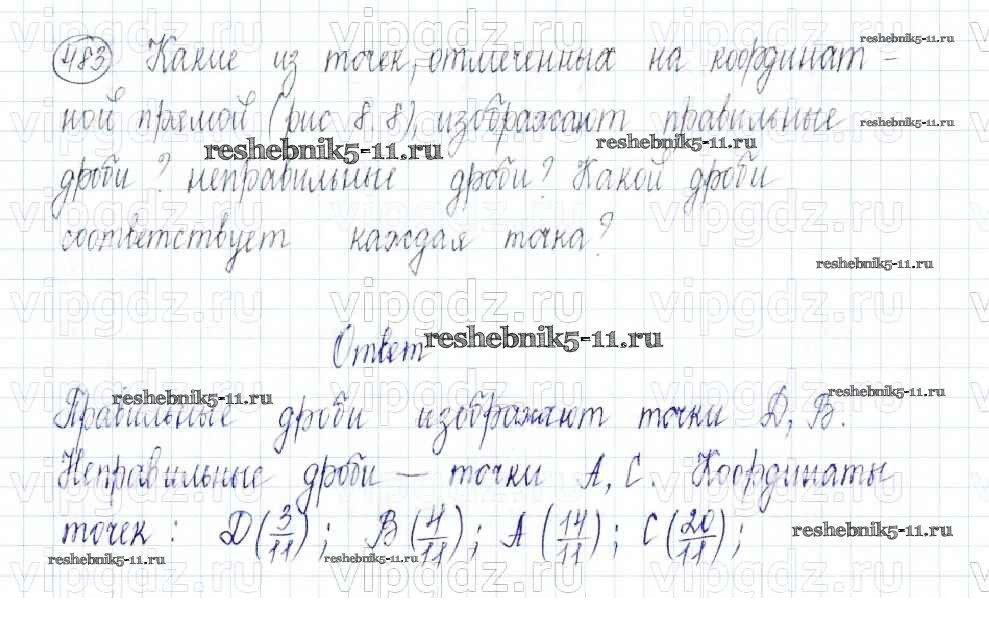 483 Какие из точек, отмеченных на координат-
ной прямой (рис 8.8), изображают правильные
дроби? неправильные дроби? Какой дроби
соответствует каждая точка?
Ответ
Правильные дроби изображают точки D, B.
Неправильные дроби — точки A, C. Координаты
точек: D(3/11); B(4/11); A(14/11); C(20/11);
vipgdz.ru
reshebnik5-11.ru